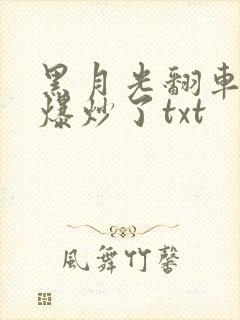 黑月光翻車
爆炒了txt
風舞竹馨